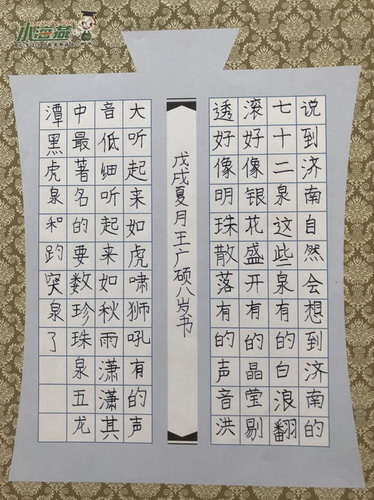 小海燕
说到济南自然会想到济南的
七十二泉这些泉有的白浪翻
滚好像银花盛开有的晶莹剔
透好像明珠散落有的声音洪
大听起来如虎啸狮吼有的声
音低细听起来如秋雨潇潇其
中最著名的要数珍珠泉五龙
潭黑虎泉和趵突泉了
戊戌夏月王广硕八岁书